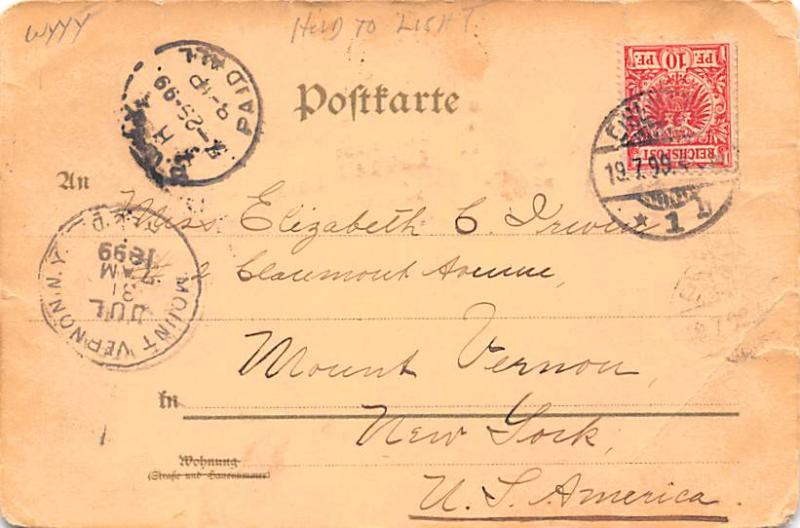 WYYY
HOLD TO LIGHT.
PAID
ALL
K
7-29-99
PE. 10 PE.
REICHSPOST
Postkarte
19.7.99.
* 1
An
Miss Elizabeth C. Irwin
2 Claremont Avenue,
MOUNT VERNON, N.Y.
JUL
31
AM
1899
Mount Vernon,
In
New York,
Wohnung
(Straße und Hausnummer)
U. S. America.